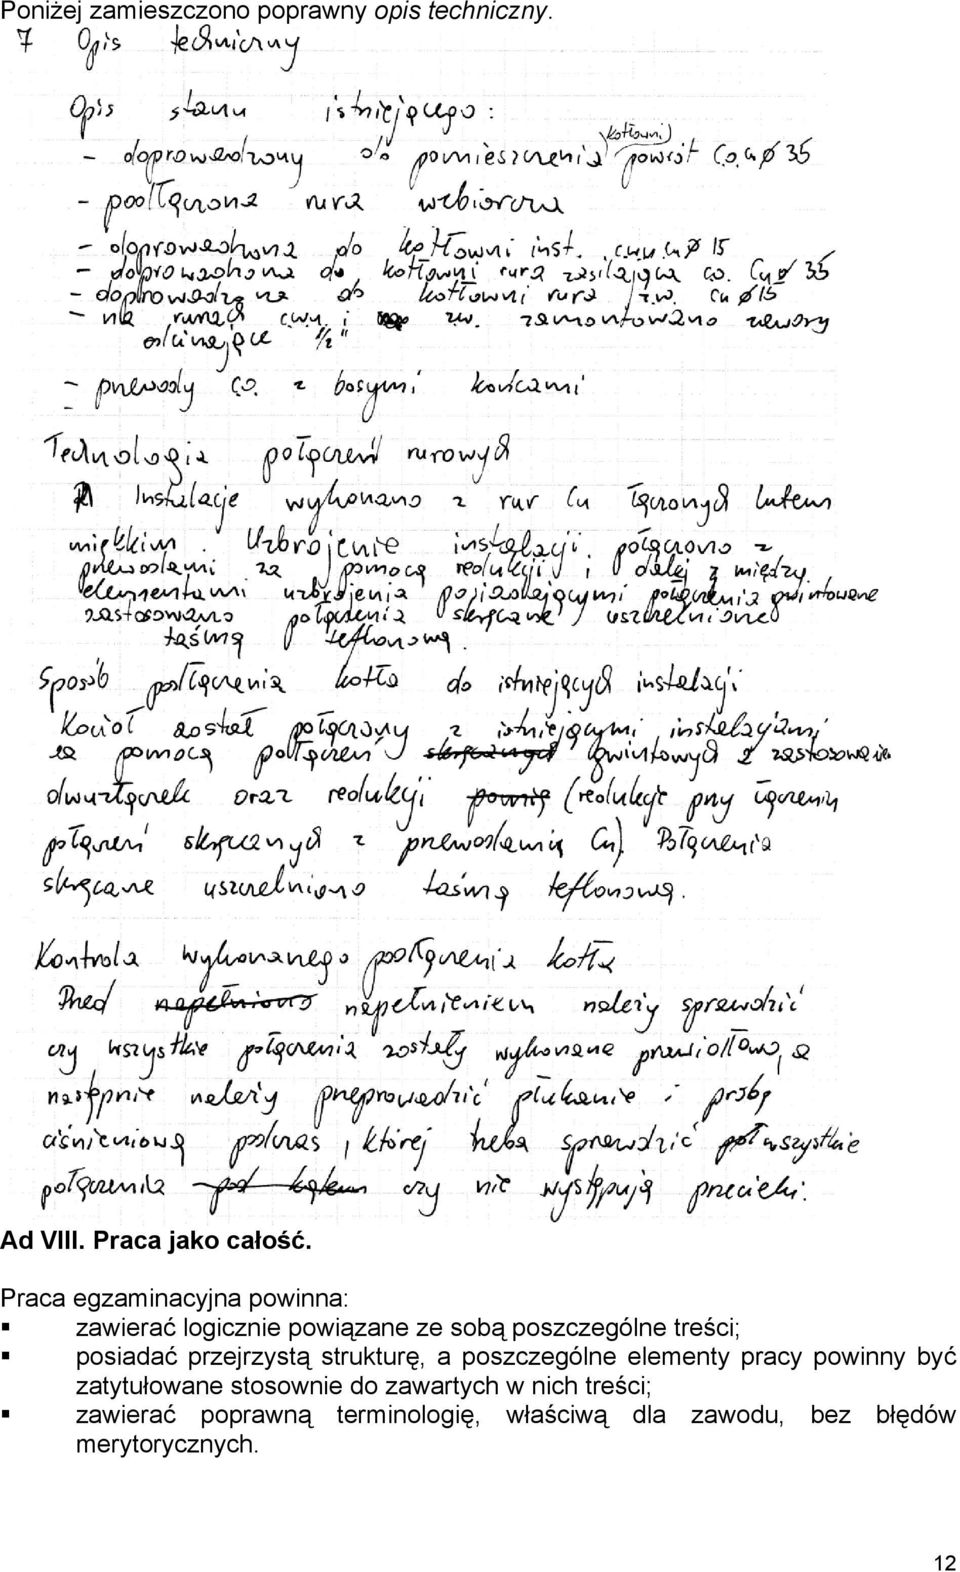 Poniżej zamieszczono poprawny opis techniczny.
7 Opis techniczny
Opis stanu istniejącego:
- doprowadzony do pomieszczenia kotłowni powrót C.O. Cu ø 35
- podłączona rura wzbiorcza
- doprowadzona do kotłowni inst. c.w.u Cu ø 15
- doprowadzona do kotłowni rura zasilająca co. Cu ø 35
- doprowadzona do kotłowni rura z.w. Cu ø 15
- na rurach c.w.u i z.w. zamontowano zawory
odcinające 1/2"
- przewody c.o. z bosymi końcami
-
Technologia połączeń rurowych
Instalacje wykonano z rur Cu łączonych lutem
miękkim. Uzbrojenie instalacji połączono z
przewodami za pomocą redukcji i dalej z między
elementami uzbrojenia posiadającymi połączenia gwintowane
zastosowano połączenia skręcane uszczelnione
taśmą teflonową.
Sposób podłączenia kotła do istniejących instalacji
Kocioł został połączony z istniejącymi instalacjami
za pomocą połączeń skręcanych gwintowych z zastosowaniem
dwuzłączek oraz redukcji (redukcje przy łączeniu
połączeń skręcanych z przewodami Cu). Połączenia
skręcane uszczelniono taśmą teflonową.
Kontrola wykonanego podłączenia kotła
Przed napełniono napełnieniem należy sprawdzić
czy wszystkie połączenia zostały wykonane prawidłowo, a
następnie należy przeprowadzić płukanie i próbę
ciśnieniową podczas, której trzeba sprawdzić wszystkie
połączenia pod kątem czy nie występują przecieki.
Ad VIII. Praca jako całość.
Praca egzaminacyjna powinna:
▪ zawierać logicznie powiązane ze sobą poszczególne treści;
▪ posiadać przejrzystą strukturę, a poszczególne elementy pracy powinny być
zatytułowane stosownie do zawartych w nich treści;
▪ zawierać poprawną terminologię, właściwą dla zawodu, bez błędów
merytorycznych.
12